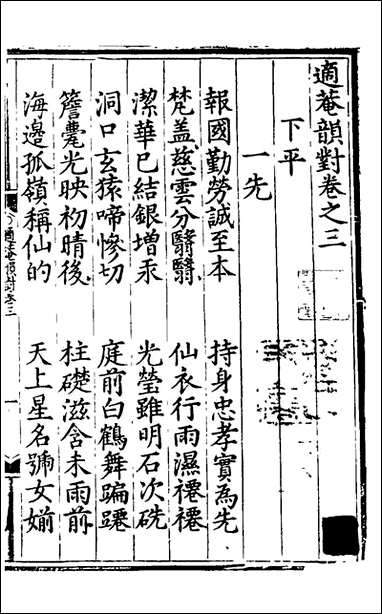 適菴韻對卷之三
下平
一先
報國勤勞誠至本 持身忠孝實為先
梵盖慈雲分翳翳 仙衣行雨濕襹襹
潔華已結銀增汞 光瑩雖明石次硃
洞口玄猿啼慘切 庭前白鶴舞蹁躚
簷霙光映初晴後 柱礎滋含未雨前
海邊孤嶺稱仙的 天上星名號女媊
適菴韻對卷三
一